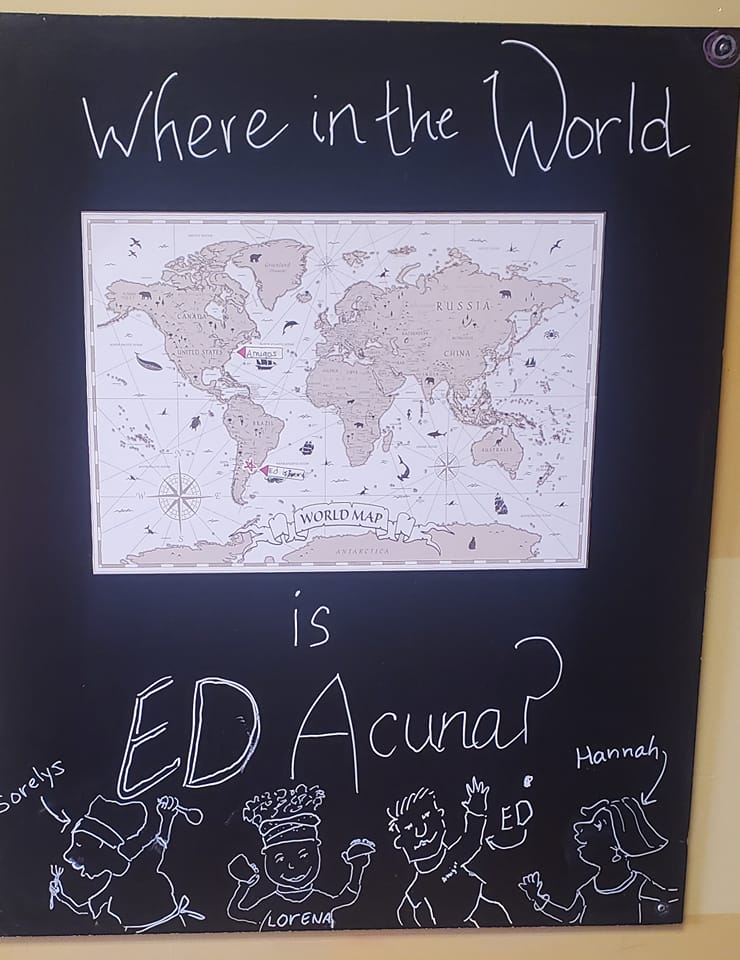 Where in the World
Greenland
CANADA
RUSSIA
UNITED STATES
Amigos
CHINA
BRAZIL
AUSTRALIA
W E
S
WORLD MAP
ANTARCTICA
is
ED Acuna?
Sorelys
Hannah
ED
LORENA